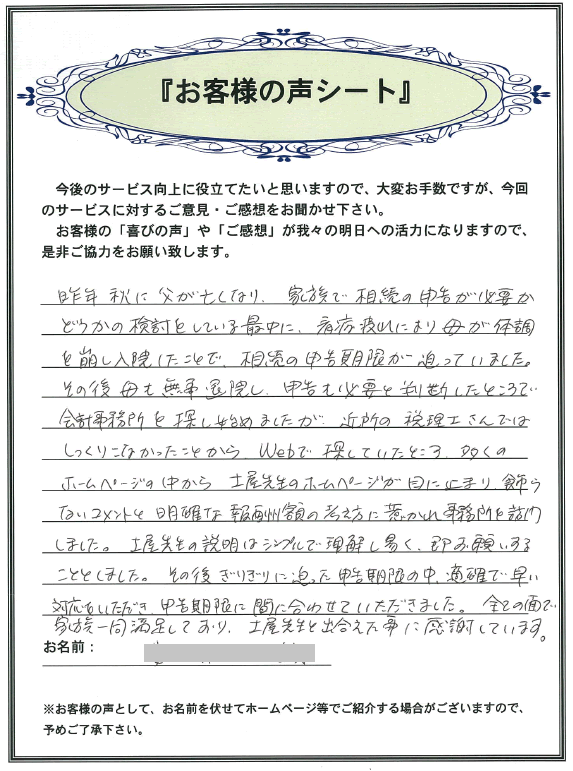 『お客様の声シート』
今後のサービス向上に役立てたいと思いますので、大変お手数ですが、今回
のサービスに対するご意見・ご感想をお聞かせ下さい。
お客様の「喜びの声」や「ご感想」が我々の明日への活力になりますので、
是非ご協力をお願い致します。
昨年秋に父が亡くなり、家族で相続の申告が必要か
どうかの検討をしている最中に、看病疲れにより母が体調
を崩し入院したことで、相続の申告期限が迫っていました。
その後母も無事退院し、申告も必要と判断したところで
会計事務所を探し始めましたが、近所の税理士さんでは
しっくりこなかったことから、Webで探していたところ、数多くの
ホームページの中から土屋先生のホームページが目に止まり、飾ら
ないコメントと明確な報酬額の考え方に惹かれ事務所を訪問
しました。土屋先生の説明はシンプルで理解し易く、即お願いする
こととしました。その後ぎりぎりに迫った申告期限の中、適確で早い
対応をいただき申告期限に間に合わせていただきました。全ての面で
家族一同満足しており、土屋先生と出合えた事に感謝しています。
お名前：
※お客様の声として、お名前を伏せてホームページ等でご紹介する場合がございますので、
予めご了承下さい。